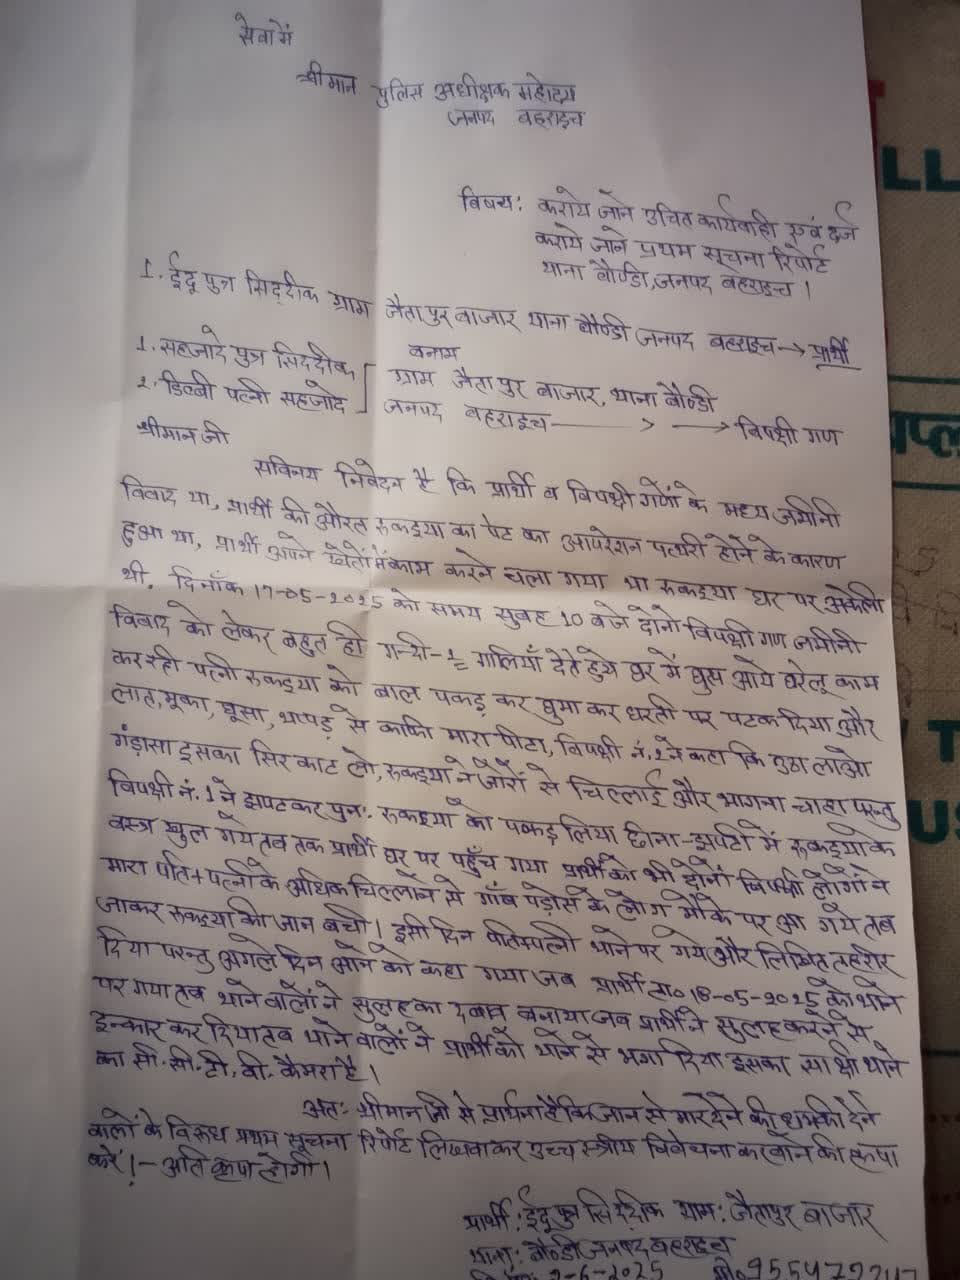 सेवा में
श्रीमान पुलिस अधीक्षक महोदय
जनपद बहराइच
विषय: कराये जाने उचित कार्यवाही एवं दर्ज
कराये जाने प्रथम सूचना रिपोर्ट
थाना बौण्डी, जनपद बहराइच ।
1. ईदू पुत्र सिद्दीक ग्राम जैतापुर बाजार थाना बौण्डी जनपद बहराइच → प्रार्थी
बनाम
1. सहजादे पुत्र सिद्दीक
2. डिल्बी पत्नी सहजादे
ग्राम जैतापुर बाजार, थाना बौण्डी
जनपद बहराइच → विपक्षी गण
श्रीमान जी
सविनय निवेदन है कि प्रार्थी व विपक्षी गणों के मध्य जमीनी
विवाद था, प्रार्थी की औरत रुकइया का पेट का आपरेशन पत्थरी होने के कारण
हुआ था, प्रार्थी अपने खेतों में काम करने चला गया था रुकइया घर पर अकेली
थी. दिनाँक 17-05-2025 को समय सुबह 10 बजे दोनो विपक्षी गण जमीनी
विवाद को लेकर बहुत ही गन्दी-2 गालियाँ देते हुये घर में घुस आये घरेलू काम
कर रही पत्नी रुकइया को बाल पकड़ कर घुमा कर धरती पर पटक दिया और
लात, मूका, घूसा, थप्पड़ से काफी मारा पीटा, विपक्षी नं. 2 ने कहा कि उठा लाओ
गंड़ासा इसका सिर काट लो, रुकइया ने जोरों से चिल्लाई और भागना चाहा परन्तु
विपक्षी नं. 1 ने झपटकर पुन: रुकइया को पकड़ लिया छीना-झपटी में रुकइया के
वस्त्र खुल गये तब तक प्रार्थी घर पर पहुँच गया प्रार्थी को भी दोनों विपक्षी लोगों ने
मारा पति+पत्नी के अधिक चिल्लाने से गाँव पड़ोस के लोग मौके पर आ गये तब
जाकर रुकइया की जान बची । इसी दिन पति+पत्नी थाने पर गये और लिखित तहरीर
दिया परन्तु अगले दिन आने को कहा गया जब प्रार्थी ता० 18-05-2025 को थाने
पर गया तब थाने वालों ने सुलह का दबाव बनाया जब प्रार्थी ने सुलह करने से
इन्कार कर दिया तब थाने वालों ने प्रार्थी को थाने से भगा दिया इसका साक्षी थाने
का सी. सी. टी. वी. कैमरा है ।
अत: श्रीमान जी से प्रार्थना है कि जान से मार देने की धमकी देने
वालों के विरूध प्रथम सूचना रिपोर्ट लिखवाकर उच्च स्तरीय विवेचना करवाने की कृपा
करें ! - अति कृपा होगी ।
प्रार्थी: ईदू पुत्र सिद्दीक ग्राम: जैतापुर बाजार
थाना: बौण्डी जनपद बहराइच
2-6-2025 मो० 9554722247
LL
प्ल
T
US